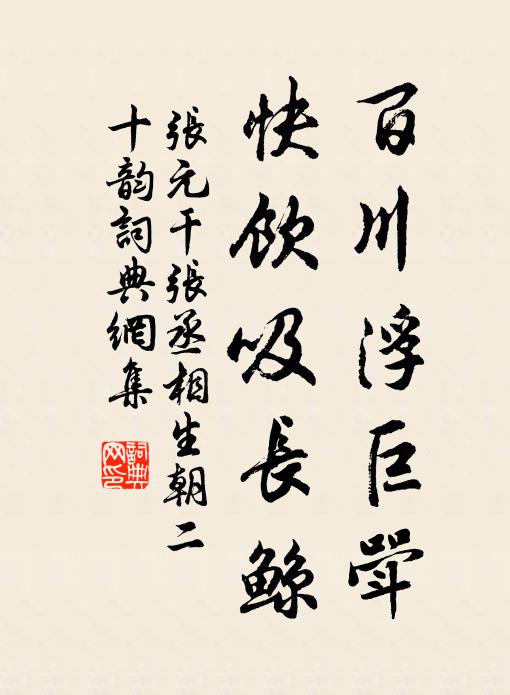 百川浮巨斝
快飲吸長鯨
張元干張丞相生朝二
十韵詞典網集
詞典网印